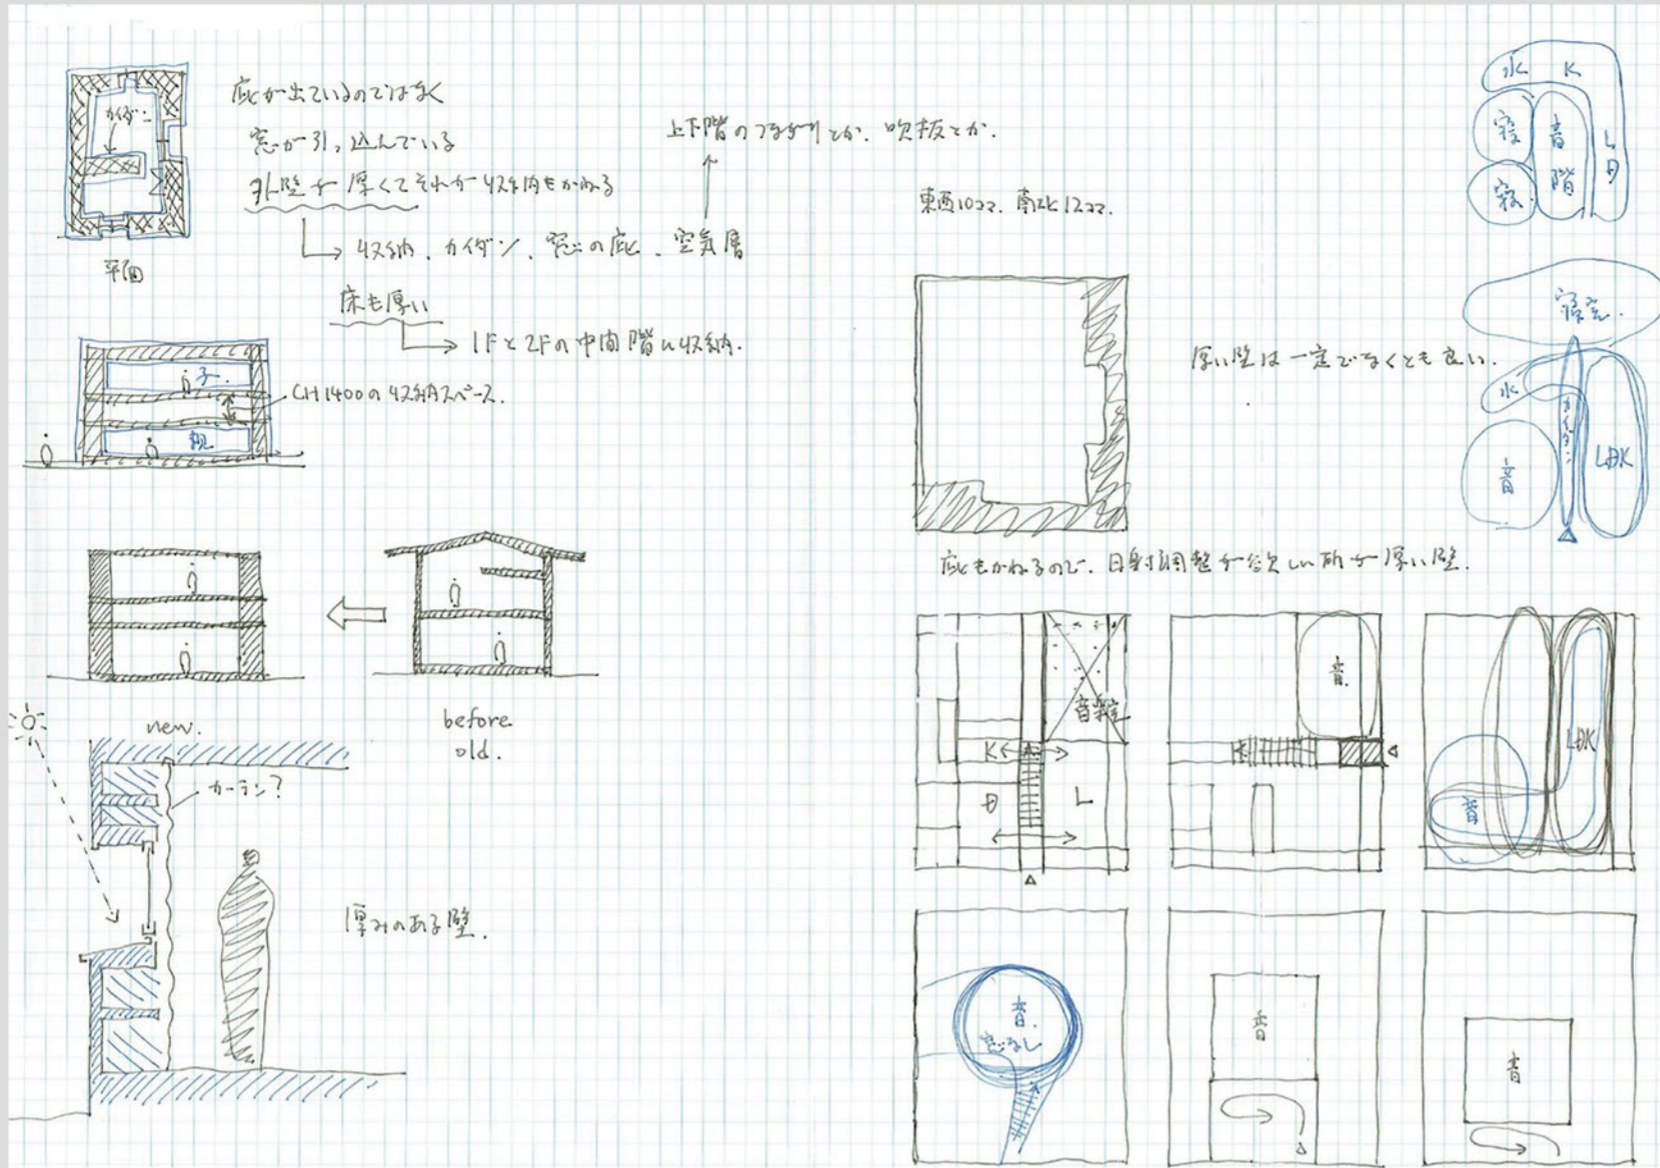 カイダン
平面
庇が出ているのではなく
窓が引っ込んでいる
外壁が厚くてそれが収納もかねる
→ 収納、カイダン、窓の庇、空気層
上下階のつながりとか、吹抜とか.
床も厚い
→ 1Fと2Fの中間階に収納.
子.
CH1400の収納スペース.
親
new.
before
old.
カーテン?
厚みのある壁.
東西10コマ. 南北12コマ.
厚い壁は一定でなくとも良い.
庇もかねるので、日射調整が欲しい所が厚い壁.
水 K
寝 音 L
寝 階 D
寝室.
水
カイダン
音 LDK
音楽室
K
D L
音.
LDK
音
音.
窓なし
音
音